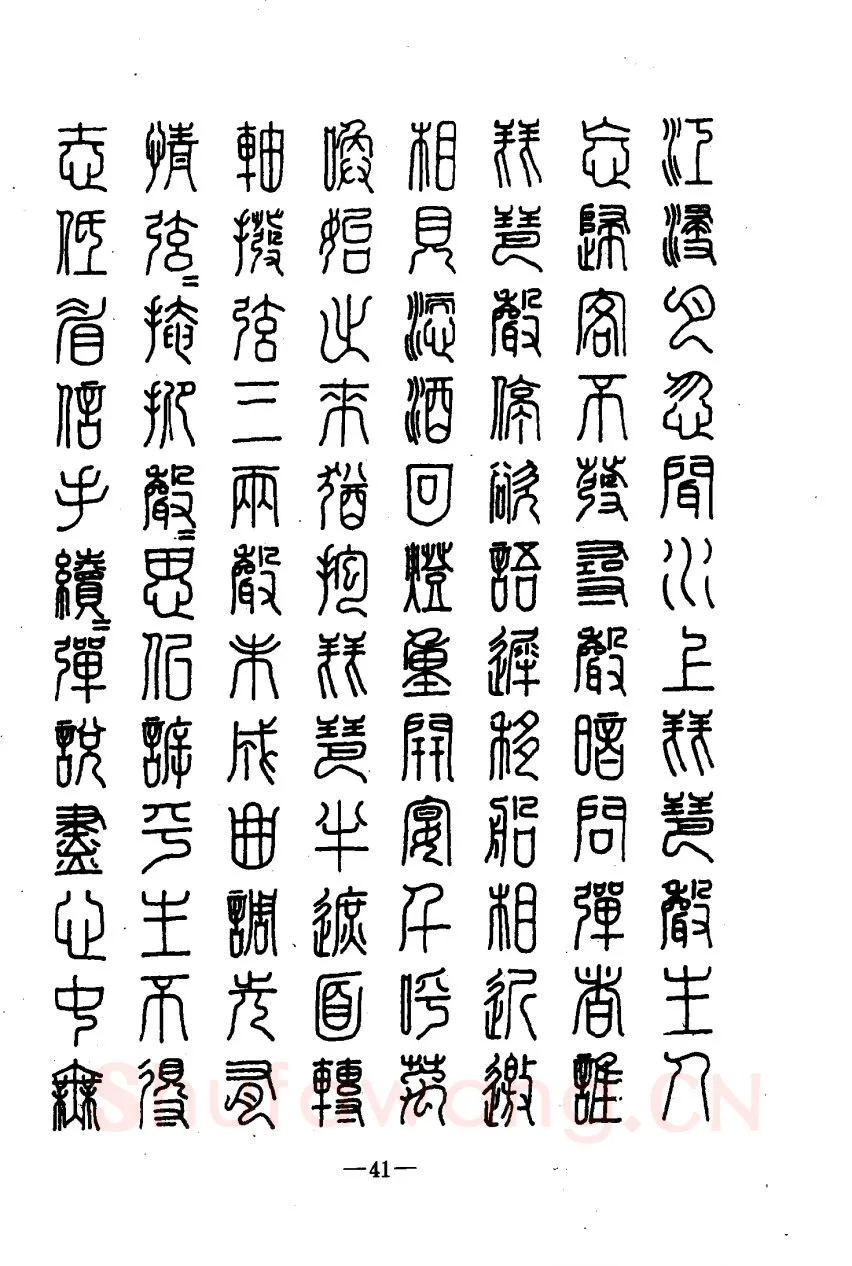 江浸月忽聞水上琵琶聲主人
忘歸客不發尋聲暗問彈者誰
琵琶聲停欲語遲移船相近邀
相見添酒回燈重開宴千呼萬
喚始出來猶抱琵琶半遮面轉
軸撥弦三兩聲未成曲調先有
情弦=掩抑聲=思似訴平生不得
志低眉信手續=彈說盡心中無
—41—